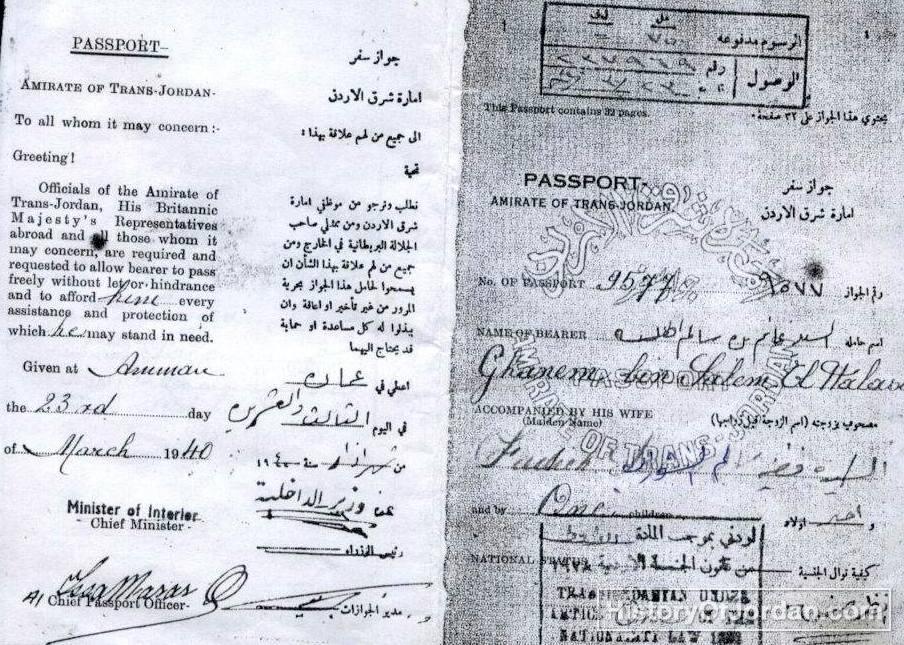 PASSPORT
AMIRATE OF TRANS-JORDAN-
To all whom it may concern:-
Greeting!
Officials of the Amirate of
Trans-Jordan, His Britannic
Majesty's Representatives
abroad and all those whom it
may concern, are required and
requested to allow bearer to pass
freely without let or hindrance
and to afford him every
assistance and protection of
which he may stand in need.
Given at Amman
the 23rd day
of March 1940
Minister of Interior
Chief Minister-
Chief Passport Officer-
جواز سفر
امارة شرق الاردن
الى جميع من لهم علاقة بهذا :
تحية
نطلب ونرجو من موظفي امارة
شرق الاردن ومن ممثلي صاحب
الجلالة البريطانية في الخارج ومن
جميع من لهم علاقة بهذا الشأن ان
يسمحوا لحامل هذا الجواز بحرية
المرور من غير تأخير او اعاقة وان
يبذلوا له كل مساعدة او حماية
قد يحتاج اليهما
اعطي في عمان
في اليوم الثالث والعشرين
من شهر اذار سنة ١٩٤٠
عن وزير الداخلية
رئيس الوزراء
مدير الجوازات
الرسوم مدفوعه
الوصول رقم
This Passport contains 32 pages.
يحتوي هذا الجواز على ٣٢ صفحة.
PASSPORT-
AMIRATE OF TRANS-JORDAN
جواز سفر
امارة شرق الاردن
No. OF PASSPORT 9577
٩٥٧٧ رقم الجواز
NAME OF BEARER
اسم حامله السيد غانم بن سالم
Ghanem bin Salem El
ACCOMPANIED BY HIS WIFE
(Maiden Name)
مصحوب بزوجته (اسم الزوجة قبل زواجها)
AMIRATE OF TRANS-JORDAN
and by One children
و اولاد
NATIONAL STATUS
كيفية نوال الجنسية
اردني بموجب المادة
من قانون الجنسية
TRANSJORDANIAN UNDER
NATIONALITY LAW
HistoryOfJordan.com